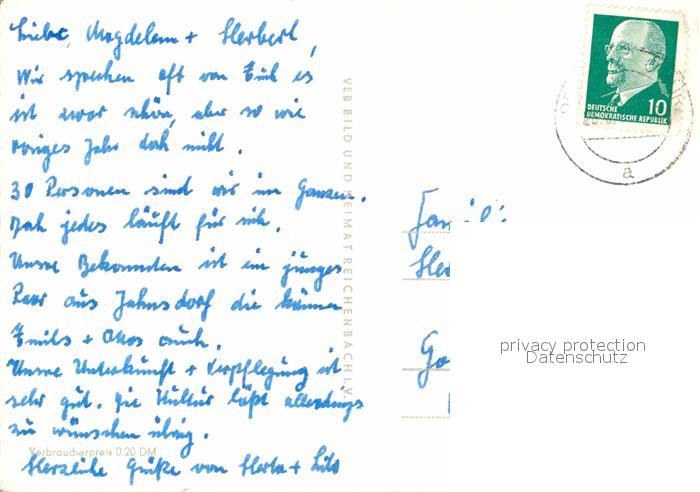 Liebe Magdelene + Herbert,
Wir sprechen oft von Euch es
ist zwar schön, aber so wie
voriges Jahr doch nicht.
30 Personen sind wir im Ganzen.
Doch jedes läuft für sich.
Unsre Bekannten ist ein junges
Paar aus Jahnsdorf die kennen
Emils + Ottos auch.
Unsre Unterkunft + Verpflegung ist
sehr gut. Die Kultur läßt allerdings
zu wünschen übrig.
Herzliche Grüße von Herta +
Verbraucherpreis 0.20 DM
VEB BILD UND HEIMAT REICHENBACH I. V.
DEUTSCHE
DEMOKRATISCHE REPUBLIK
10
a
Famil
privacy protection
Datenschutz